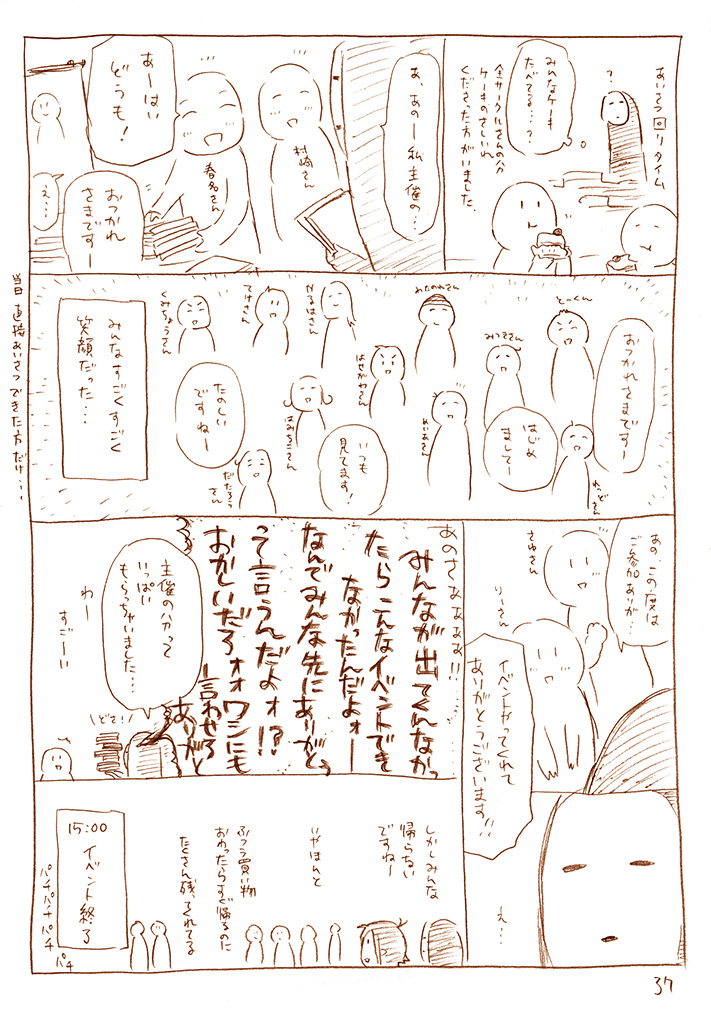 あいさつ回りタイム
?
みんなケーキ
たべてる…?
全サークルさんの分
ケーキのさしいれ
くださった方がいました。
あ、あのー私主催の…
村崎さん
あーはい
どうも!
春名さん
おつかれ
さまですー
え…
おつかれさまですー
とーくん
わたのれさん
みつるさん
かるはさん
てけさん
くみちょうさん
はじめ
ましてー
れっどさん
れいあさん
はせがわさん
はみちこさん
いつも
見てます!
たのしい
ですねー
だたろう
さん
みんなすごくすごく
笑顔だった…
当日直接あいさつできた方だけ…
あの、この度は
ご参加ありが…
さゆさん
りーさん
イベントやってくれて
ありがとうございます!!
え…
あのさぁぁぁぁ!!
みんなが出てくんなかっ
たらこんなイベントでき
なかったんだよォー
なんでみんな先にありがとう
って言うんだよォ!?
おかしいだろォォワシにも
言わせろー
ありがと
主催の分って
いっぱい
もらっちゃいました…
どさ!
わー
すごーい
しかしみんな
帰らない
ですねー
いやほんと
ふつう買い物
おわったらすぐ帰るのに
たくさん残ってくれてる
15:00 イベント終了
パチパチパチ
パチ
37